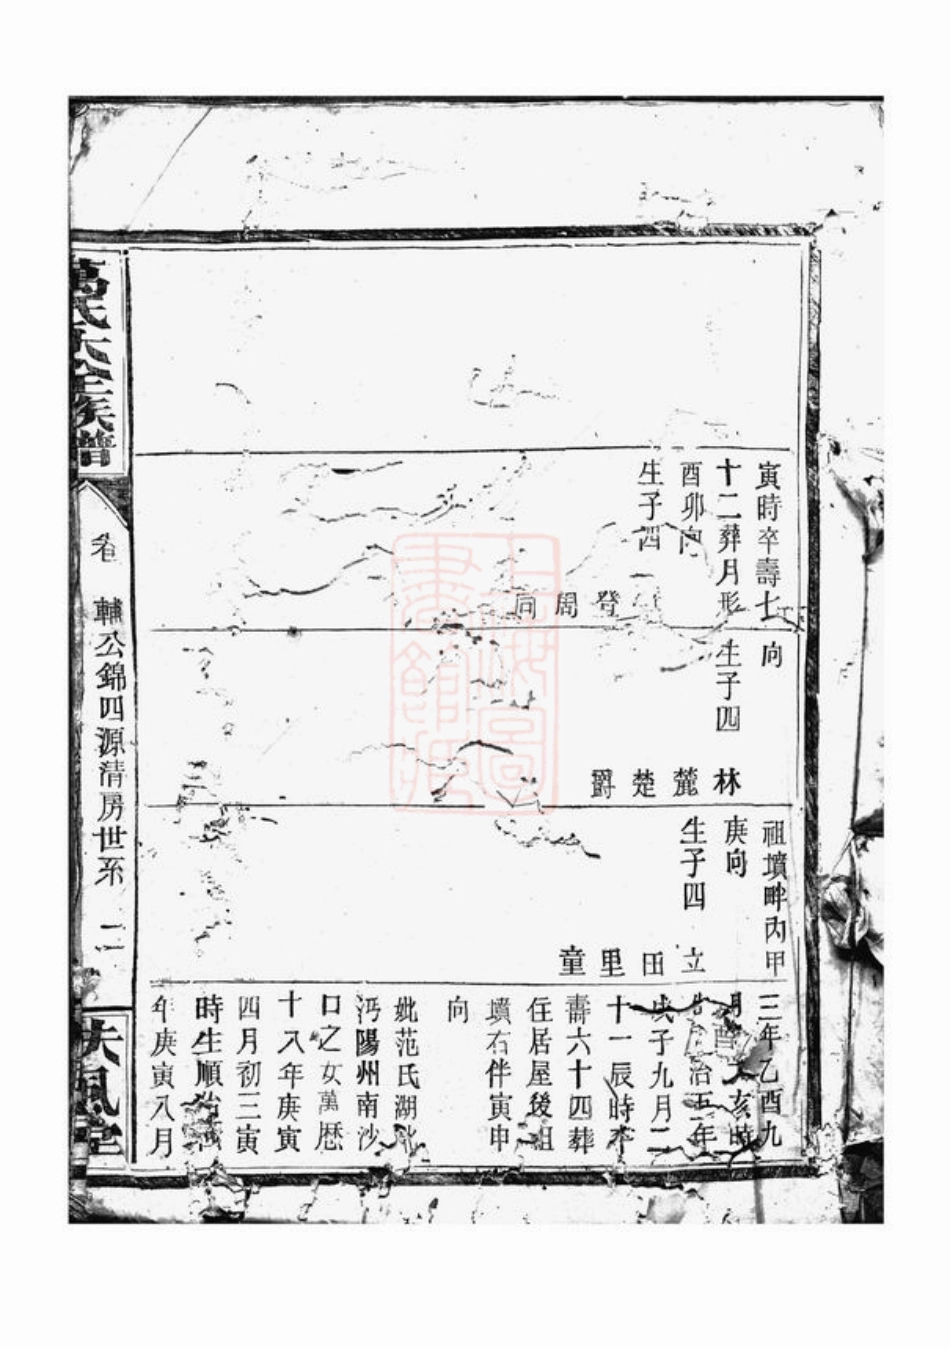 寅時卒壽七
十二葬月形
酉卯向
生子四
登
周
同
向
生子四
林
麓
楚
爵
祖墳畔丙甲
庚向
生子四
立
田
里
童
三年乙酉九
月 亥時
治五年
戊子九月二
十一辰時卒
壽六十四葬
住居屋後祖
墳右伴寅申
向
妣范氏湖
沔陽州南沙
口之女萬歷
十八年庚寅
四月初三寅
時生順治
年庚寅八月
萬氏大全族譜
卷
輔公錦四源清房世系
二
扶風堂